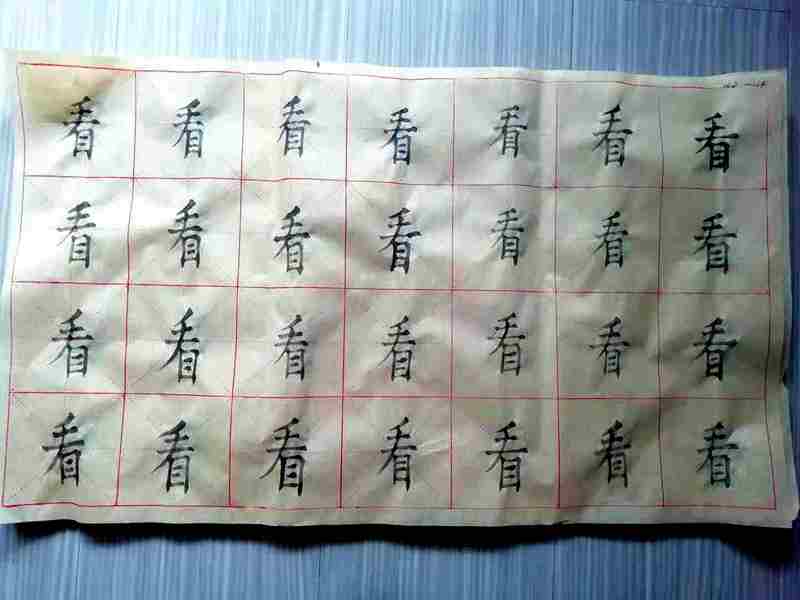 看看看看看看看
看看看看看看看
看看看看看看看
看看看看看看看